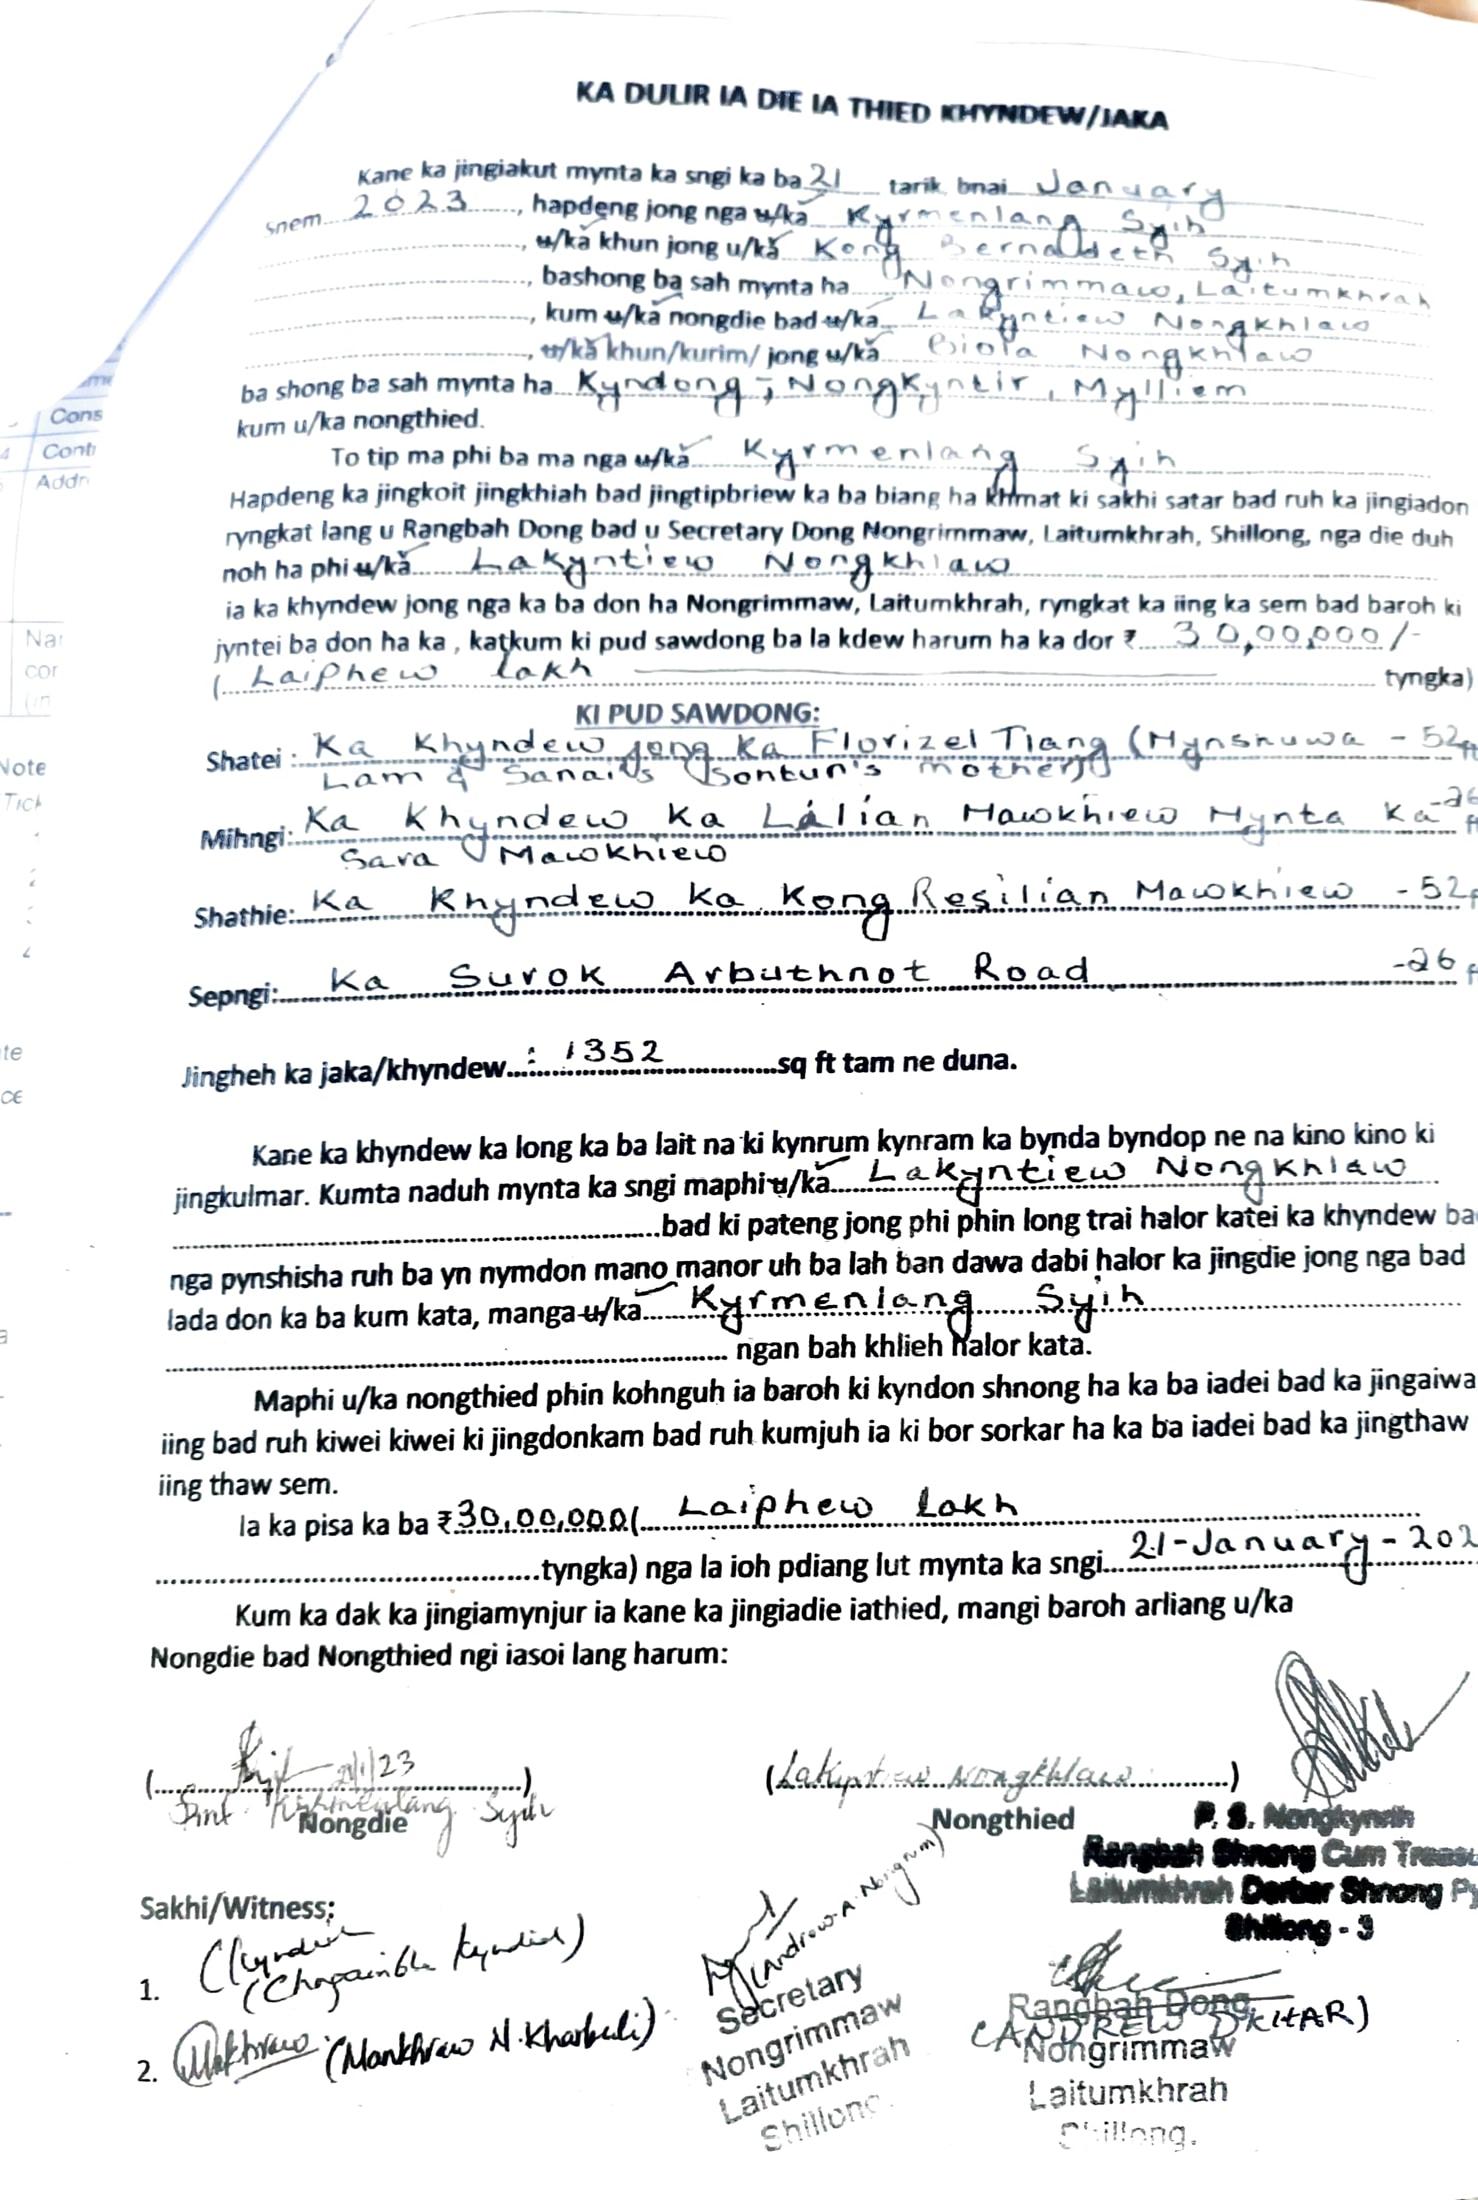 KA DULIR IA DIE IA THIED KHYNDEW/JAKA
Kane ka jingiakut mynta ka sngi ka ba 21 tarik bnai January
snem 2023, hapdeng jong nga u/ka Kyrmenlang Syih
, u/ka khun jong u/ka Kong Bernadeth Syih
, bashong ba sah mynta ha Nongrimmaw, Laitumkhrah
, kum u/ka nongdie bad u/ka Lakyntiew Nongkhlaw
, u/ka khun/kurim/ jong u/ka Biola Nongkhlaw
ba shong ba sah mynta ha Kyndong; Nongkyntir, Mylliem
kum u/ka nongthied.
To tip ma phi ba ma nga u/ka Kyrmenlang Syih
Hapdeng ka jingkoit jingkhiah bad jingtipbriew ka ba biang ha khmat ki sakhi satar bad ruh ka jingiadon
ryngkat lang u Rangbah Dong bad u Secretary Dong Nongrimmaw, Laitumkhrah, Shillong, nga die duh
noh ha phi u/ka Lakyntiew Nongkhlaw
ia ka khyndew jong nga ka ba don ha Nongrimmaw, Laitumkhrah, ryngkat ka iing ka sem bad baroh ki
jyntei ba don ha ka , katkum ki pud sawdong ba la kdew harum ha ka dor ₹ 30,00,000/-
( Laiphew lakh tyngka)
KI PUD SAWDONG:
Shatei : Ka Khyndew jong ka Florizel Tiang (Mynshuwa - 52 ft
Lam & Sanai's (Bontun's mother)
Mihngi: Ka Khyndew ka Lalian Mawkhiew Mynta ka - 26 ft
Sara Mawkhiew
Shathie: Ka Khyndew ka Kong Resilian Mawkhiew - 52 f
Sepngi: Ka Surok Arbuthnot Road - 26 f
Jingheh ka jaka/khyndew : 1352 sq ft tam ne duna.
Kane ka khyndew ka long ka ba lait na ki kynrum kynram ka bynda byndop ne na kino kino ki
jingkulmar. Kumta naduh mynta ka sngi maphi u/ka Lakyntiew Nongkhlaw
bad ki pateng jong phi phin long trai halor katei ka khyndew ba
nga pynshisha ruh ba yn nymdon mano manor uh ba lah ban dawa dabi halor ka jingdie jong nga bad
lada don ka ba kum kata, manga u/ka Kyrmenlang Syih
ngan bah khlieh halor kata.
Maphi u/ka nongthied phin kohnguh ia baroh ki kyndon shnong ha ka ba iadei bad ka jingaiwa
iing bad ruh kiwei kiwei ki jingdonkam bad ruh kumjuh ia ki bor sorkar ha ka ba iadei bad ka jingthaw
iing thaw sem.
Ia ka pisa ka ba ₹ 30,00,000 ( Laiphew lakh
tyngka) nga la ioh pdiang lut mynta ka sngi 21-January-202
Kum ka dak ka jingiamynjur ia kane ka jingiadie iathied, mangi baroh arliang u/ka
Nongdie bad Nongthied ngi iasoi lang harum:
( 21/1/23 )
Smt. Kyrmenlang Syih
Nongdie
(Lakyntiew Nongkhlaw)
Nongthied
P. S. Nongkynrih
Rangbah Shnong Cum Treasu
Laitumkhrah Dorbar Shnong Py
Shillong - 3
Sakhi/Witness:
1. (Kyndiah
(Chagainbha Kyndiah)
2. Mankhraw (Mankhraw N. Kharbuli)
(Andrew A. Nongrum)
Secretary
Nongrimmaw
Laitumkhrah
Shillong.
Rangbah Dong
(ANDREW DKHAR)
Nongrimmaw
Laitumkhrah
Shillong.